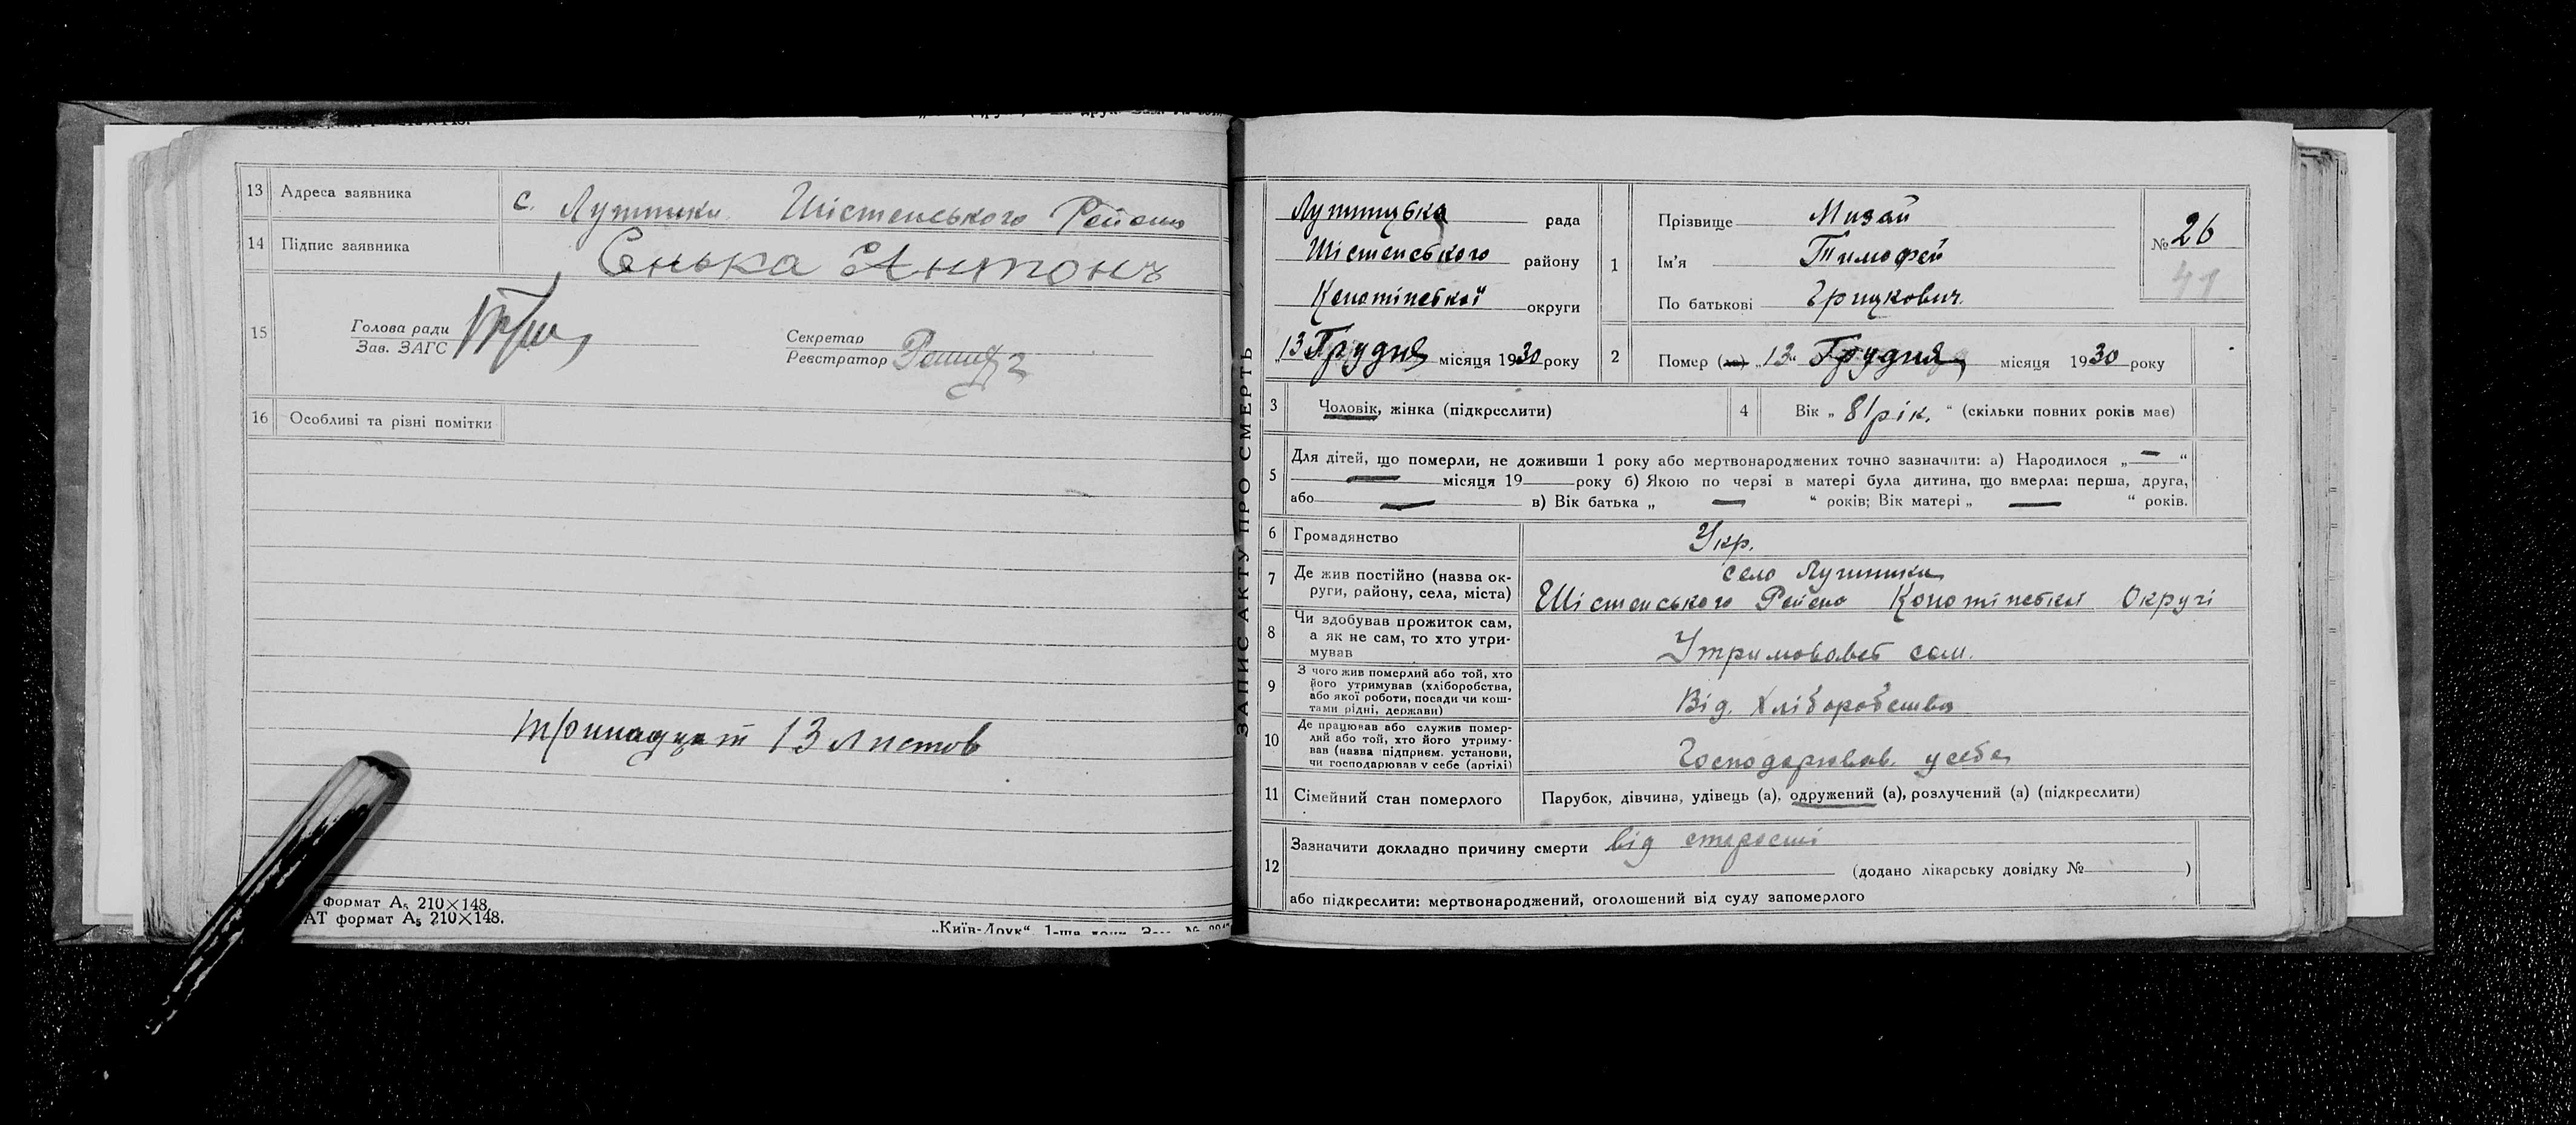 13 Адреса заявника с. Лушники Шістенського Району
14 Підпис заявника Сенька Антонъ
15 Голова ради
Зав. ЗАГС
Секретар
Реєстратор
16 Особливі та різні помітки
тринадцат 13 листов
формат А₅ 210×148.
АТ формат А₅ 210×148.
„Київ-Друк“ 1-ша друк. Зам. №
ЗАПИС АКТУ ПРО СМЕРТЬ
рада
Шістенського району
Конотіпської округи
„13 Грудня місяця 1930 року
1 Прізвище Мизай
Ім'я Тимофей
По батькові Грицкович
№ 26
41
2 Помер (ла) „13 Грудня місяця 1930 року
3 Чоловік, жінка (підкреслити)
4 Вік „ 81 рік. “ (скільки повних років має)
5 Для дітей, що померли, не доживши 1 року або мертвонароджених точно зазначити: а) Народилося „ — “
— місяця 19 року б) Якою по черзі в матері була дитина, що вмерла: перша, друга,
або — в) Вік батька „ — “ років; Вік матері „ — “ років.
6 Громадянство Укр.
7 Де жив постійно (назва ок-
руги, району, села, міста)
село Лушники
Шістенського Району Конотіпської Округі
8 Чи здобував прожиток сам,
а як не сам, то хто утри-
мував
Утримовавсь сам.
9 З чого жив померлий або той, хто
його утримував (хліборобства,
або якої роботи, посади чи кош-
тами рідні, держави)
Від. Хліборобства
10 Де працював або служив помер-
лий або той, хто його утриму-
вав (назва підприєм. установи,
чи господарював у себе (артілі)
Господарював. у себе
11 Сімейний стан померлого Парубок, дівчина, удівець (а), одружений (а), розлучений (а) (підкреслити)
12 Зазначити докладно причину смерти від старости
(додано лікарську довідку № )
або підкреслити: мертвонароджений, оголошений від суду запомерлого